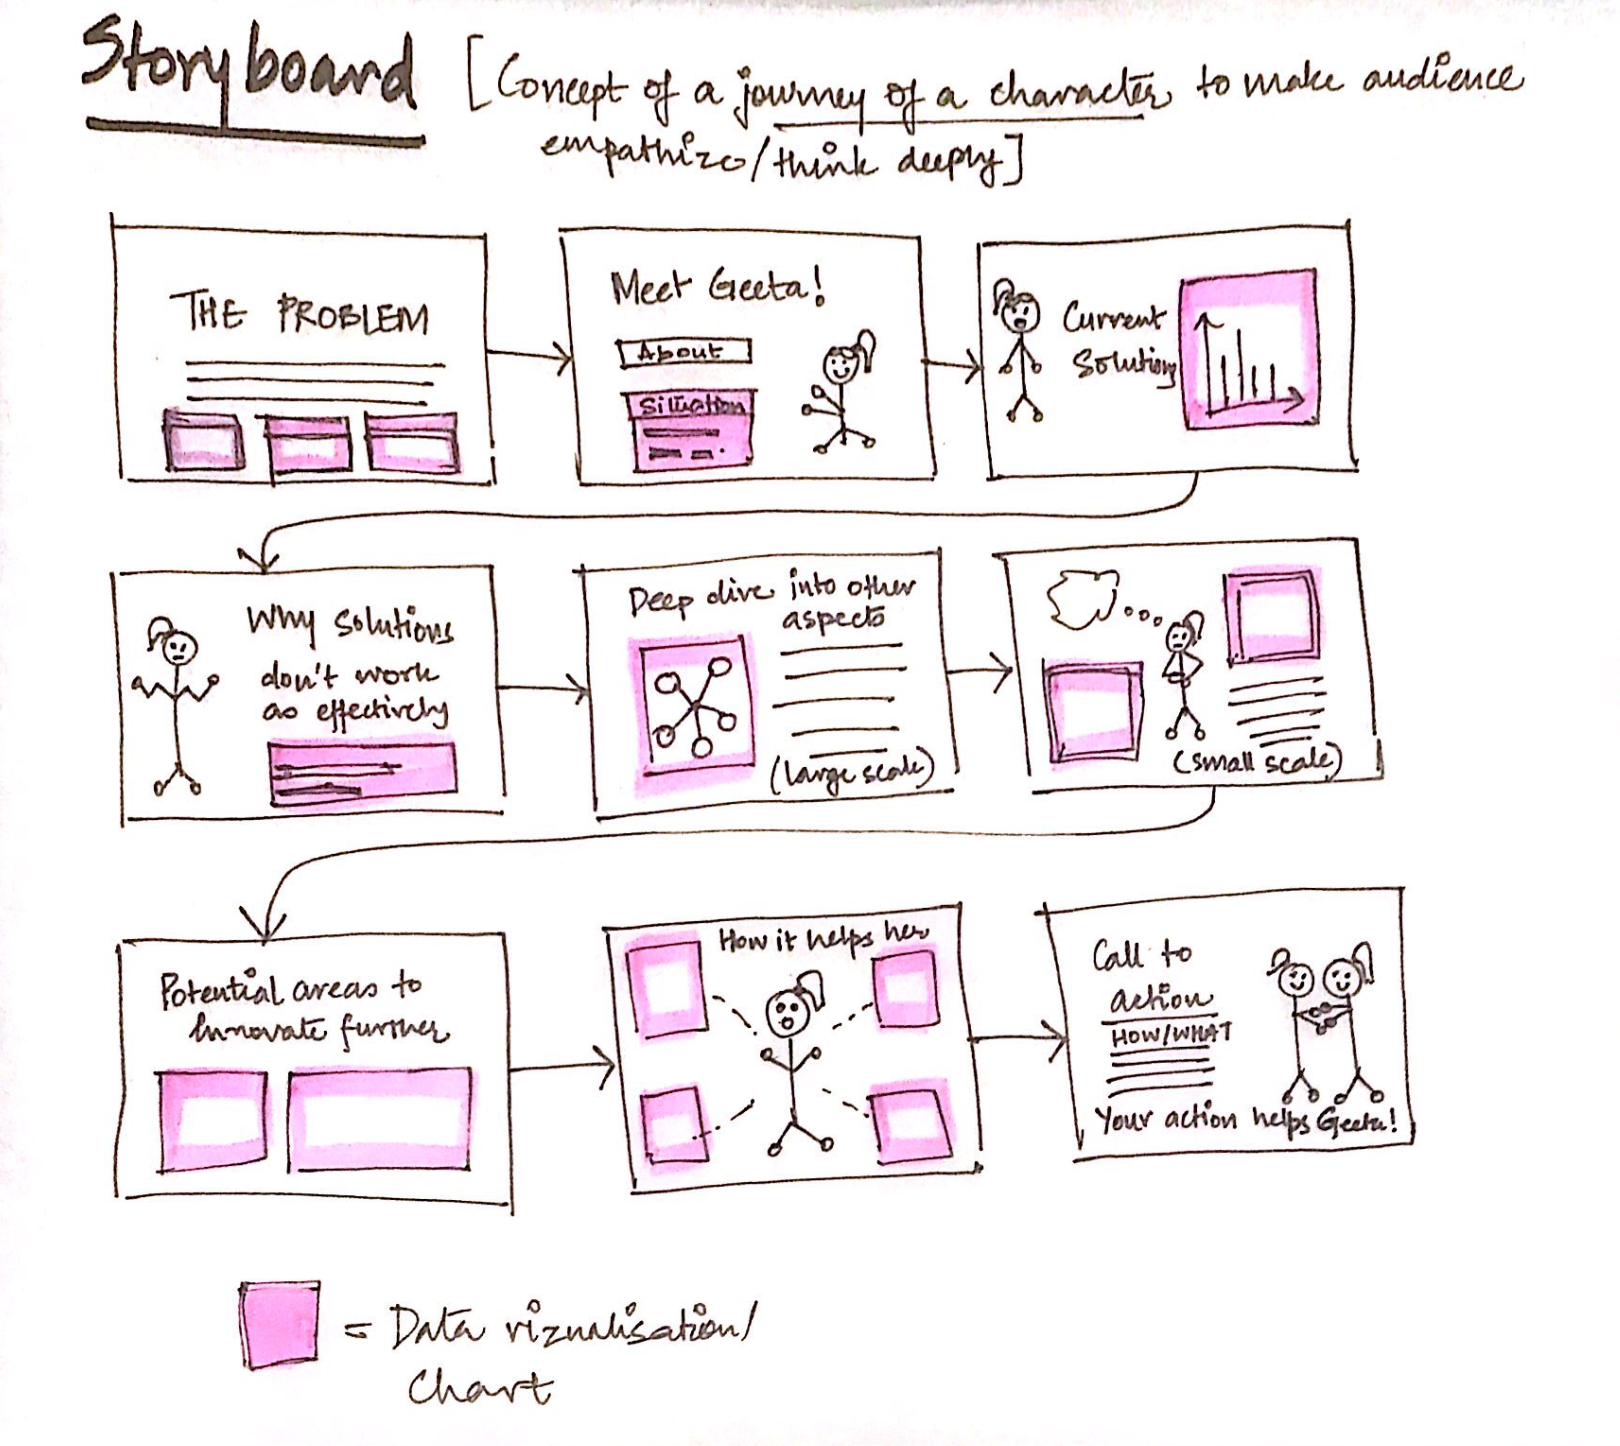 Storyboard [Concept of a journey of a character to make audience
empathize/think deeply]
THE PROBLEM
Meet Geeta!
About
Situation
Current
Solutions
Why solutions
don't work
as effectively
Deep dive into other
aspects
(large scale)
(small scale)
Potential areas to
innovate further
How it helps her
Call to
action
HOW/WHAT
Your action helps Geeta!
= Data vizualisation/
Chart